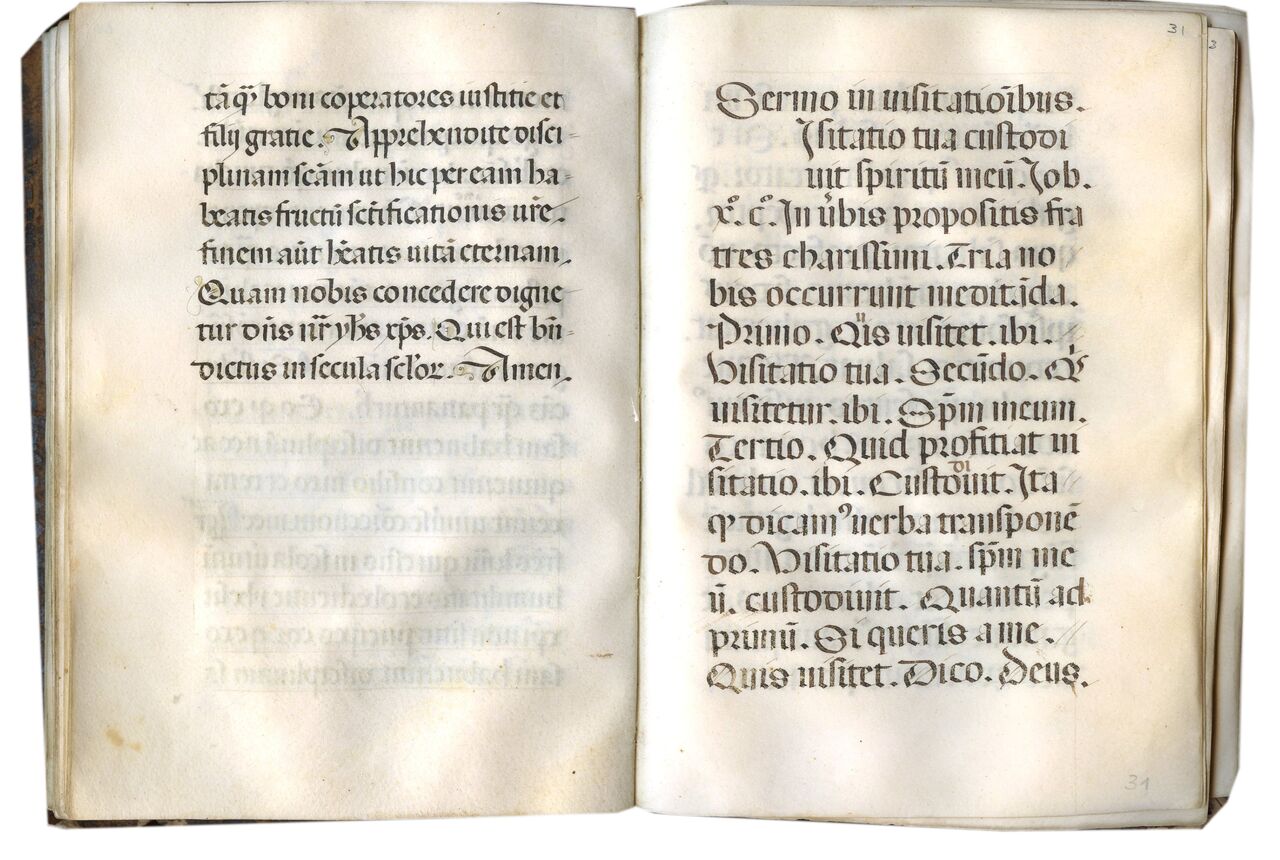 tā qͣ boni coperatores iustitie et
filij gratie. Apprehendite disci-
plinam scām ut hic per eam ha-
beatis fructū sctīficationis urē.
finem aūt hēatis uitā eternam.
Quam nobis concedere digne
tur dn̄s nr̄ yhs xp̄s. Qui est bn̄-
dictus in secula sclōr. Amen.
31
Sermo in uisitatioībus.
Isitatio tua custodi
uit spiritū meū. Job.
x°. c°. In ūbis propositis fra
tres charissimi. Tria no
bis occurrunt meditāda.
Primo. Quis uisitet. ibi.
Visitatio tua. Secūdo. Qͥd
uisitetur. ibi. Sp̄m meum.
Tertio. Quid profitiat ui
sitatio. ibi. Custodiuit. Ita
qͥ dicamꝰ uerba transponē
do. Visitatio tua. sp̄m me
ū. custodiuit. Quantū ad
primū. Si queris a me.
Quis uisitet. Dico. Deus.
31